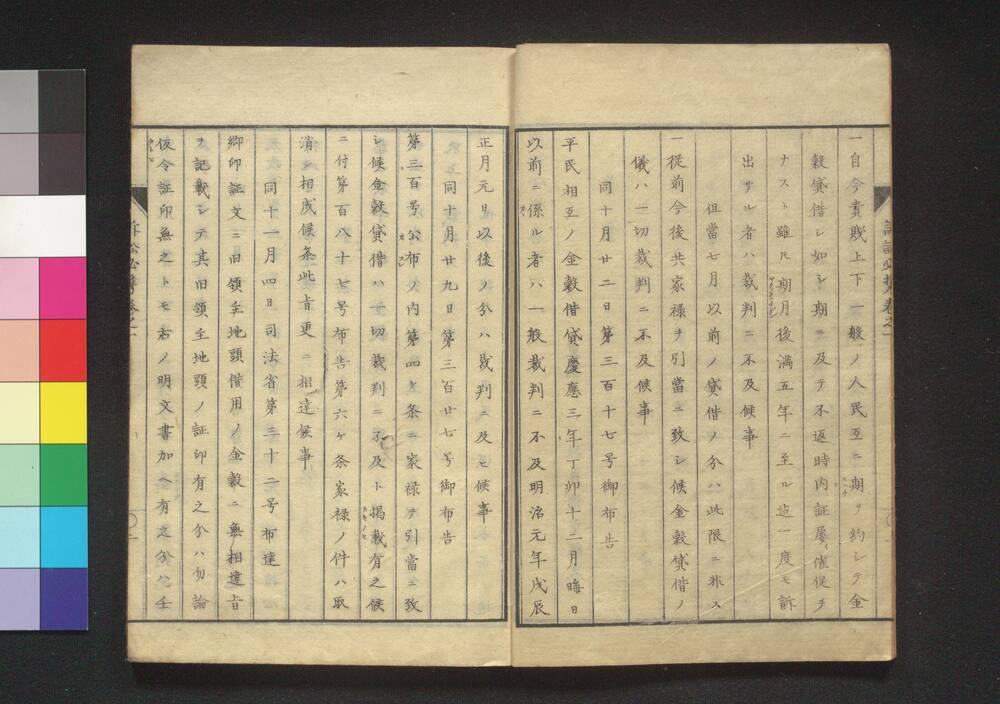 一自今貴賤上下一般ノ人民互ニ期ヲ約シテ金
穀貸借シ如シ期ニ及テ不返時内証屡催促ヲ
ナスト雖𪜈期月後満五年ニ至ル迠一度モ訴
出サル者ハ裁判ニ不及候事
但當七月以前ノ貸借ノ分ハ此限ニ非ス
一従前今後共家禄ヲ引當ニ致シ候金穀貸借ノ
儀ハ一切裁判ニ不及候事
同十月廿二日第三百十七号御布告
平民相互ノ金穀借貸慶應三年丁卯十二月晦日
以前ニ係ル者ハ一般裁判ニ不及明治元年戊辰
正月元日以後ノ分ハ裁判ニ及ヒ候事
同十月廿九日第三百廿七号御布告
第三百号公布ノ内第四ケ条ニ家禄ヲ引當ニ致
シ候金穀貸借ハ一切裁判ニ不及ト掲載有之候
ニ付第百八十七号布告第六ケ条家禄ノ件ハ取
消相成候条此旨更ニ相達候事
同十一月四日司法省第三十二号布達
郷印証文ニ旧領主地頭借用ノ金穀ニ無相違旨
ヲ記載シテ其旧領主地頭ノ証印有之分ハ勿論
仮令証印無之トモ右ノ明文書加ヘ有之分ハ壬